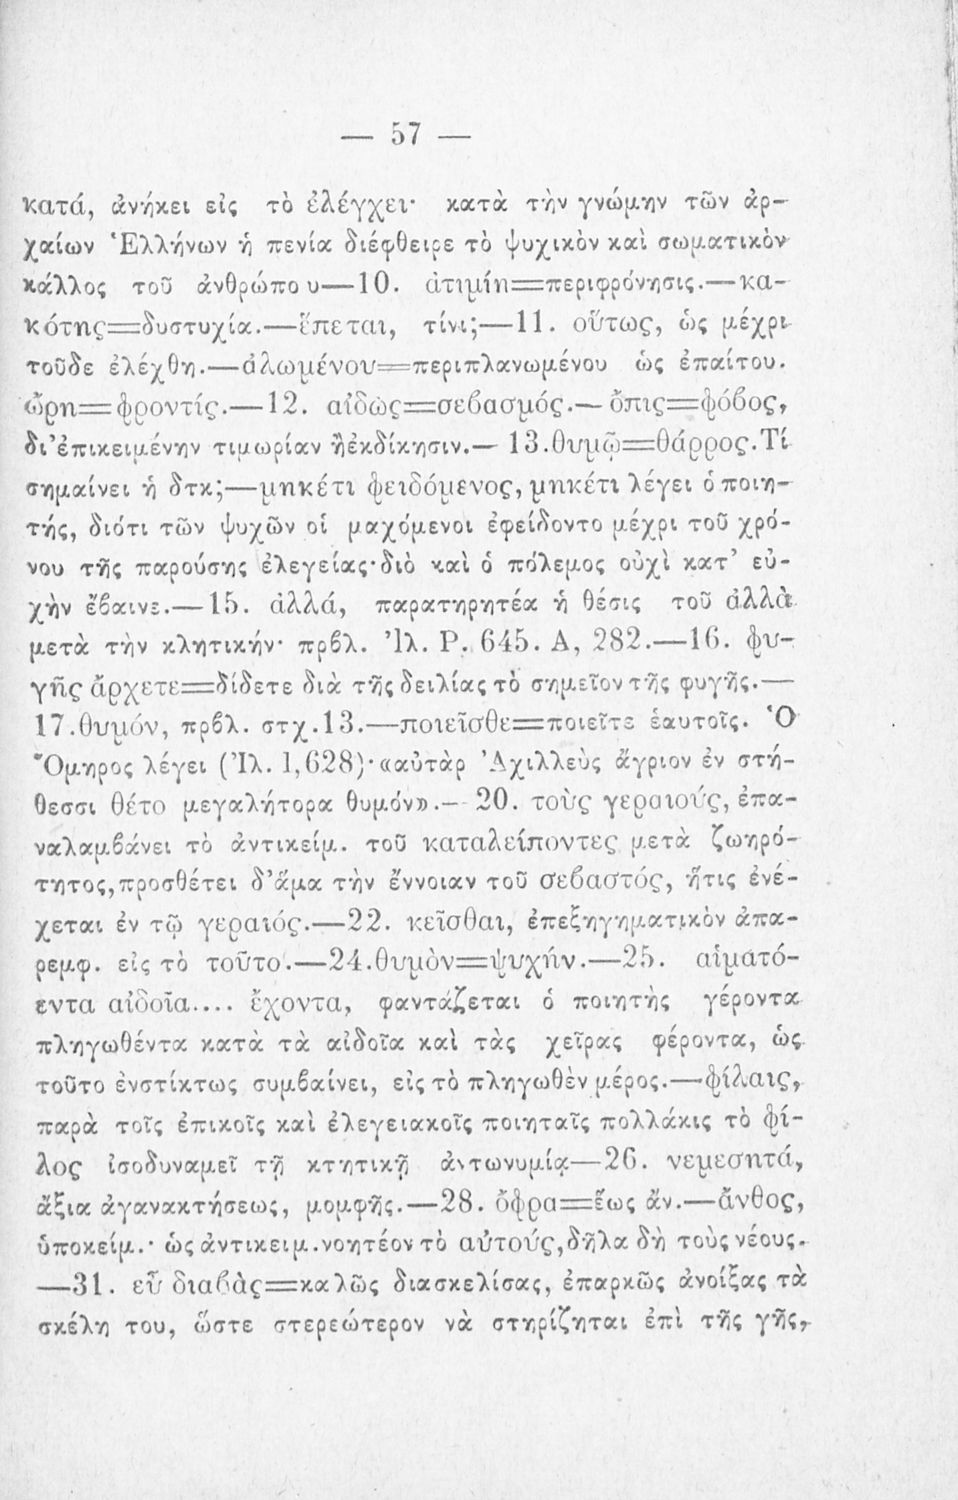 — 57 —
κατά, ἀνήκει εἰς τὸ ἐλέγχει· κατὰ τὴν γνώμην τῶν ἀρ-
χαίων Ἑλλήνων ἡ πενία διέφθειρε τὸ ψυχικὸν καὶ σωματικὸν
κάλλος τοῦ ἀνθρώπου—10. ἀτιμίη=περιφρόνησις.—κα-
κότης=δυστυχία.—ἕπεται, τίνι;—11. οὕτως, ὡς μέχρι
τοῦδε ἐλέχθη.—ἀλωμένου=περιπλανωμένου ὡς ἐπαίτου.
ὤρη=φροντίς.—12. αἰδὼς=σεβασμός.—ὄπις=φόβος,
δι’ἐπικειμένην τιμωρίαν ἢἐκδίκησιν.—13.θυμῷ=θάρρος.Τί
σημαίνει ἡ δτκ;—μηκέτι φειδόμενος, μηκέτι λέγει ὁ ποιη-
τής, διότι τῶν ψυχῶν οἱ μαχόμενοι ἐφείδοντο μέχρι τοῦ χρό-
νου τῆς παρούσης ἐλεγείας·διὸ καὶ ὁ πόλεμος οὐχὶ κατ’ εὐ-
χὴν ἔβαινε.—15. ἀλλά, παρατηρητέα ἡ θέσις τοῦ ἀλλὰ
μετὰ τὴν κλητικήν· πρβλ. Ἰλ. Ρ. 645. Α, 282.—16. φυ-
γῆς ἄρχετε=δίδετε διὰ τῆς δειλίας τὸ σημεῖον τῆς φυγῆς.—
17.θυμόν, πρβλ. στχ.13.—ποιεῖσθε=ποιεῖτε ἑαυτοῖς. Ὁ
Ὅμηρος λέγει (Ἰλ. 1,628)·«αὐτὰρ Ἀχιλλεὺς ἄγριον ἐν στή-
θεσσι θέτο μεγαλήτορα θυμόν».—20. τοὺς γεραιούς, ἐπα-
ναλαμβάνει τὸ ἀντικείμ. τοῦ καταλείποντες μετὰ ζωηρό-
τητος,προσθέτει δ’ἅμα τὴν ἔννοιαν τοῦ σεβαστός, ἥτις ἐνέ-
χεται ἐν τῷ γεραιός.—22. κεῖσθαι, ἐπεξηγηματικὸν ἀπα-
ρεμφ. εἰς τὸ τοῦτο.—24.θυμὸν=ψυχήν.—25. αἱματό-
εντα αἰδοῖα.... ἔχοντα, φαντάζεται ὁ ποιητὴς γέροντα
πληγωθέντα κατὰ τὰ αἰδοῖα καὶ τὰς χεῖρας φέροντα, ὡς
τοῦτο ἐνστίκτως συμβαίνει, εἰς τὸ πληγωθὲν μέρος.—φίλαις,
παρὰ τοῖς ἐπικοῖς καὶ ἐλεγειακοῖς ποιηταῖς πολλάκις τὸ φί-
λος ἰσοδυναμεῖ τῇ κτητικῇ ἀντωνυμίᾳ—26. νεμεσητά,
ἄξια ἀγανακτήσεως, μομφῆς.—28. ὄφρα=ἕως ἄν.—ἄνθος,
ὑποκείμ.· ὡς ἀντικειμ.νοητέον τὸ αὐτούς,δῆλα δὴ τοὺς νέους.
—31. εὖ διαβὰς=καλῶς διασκελίσας, ἐπαρκῶς ἀνοίξας τὰ
σκέλη του, ὥστε στερεώτερον νὰ στηρίζηται ἐπὶ τῆς γῆς,